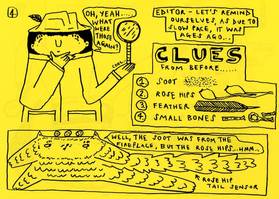 4
OH, YEAH....
WHAT
WERE
THOSE
AGAIN?
EDITOR - LET'S REMIND
OURSELVES, AS DUE TO
SLOW PACE, IT WAS
AGES AGO...
CLUES
FROM BEFORE......
1 SOOT
2 ROSE HIPS
3 FEATHER
4 SMALL BONES
WELL, THE SOOT WAS FROM THE
FIREPLACE, BUT THE ROSE HIPS..HMM..
ROSE HIP
TAIL SENSOR